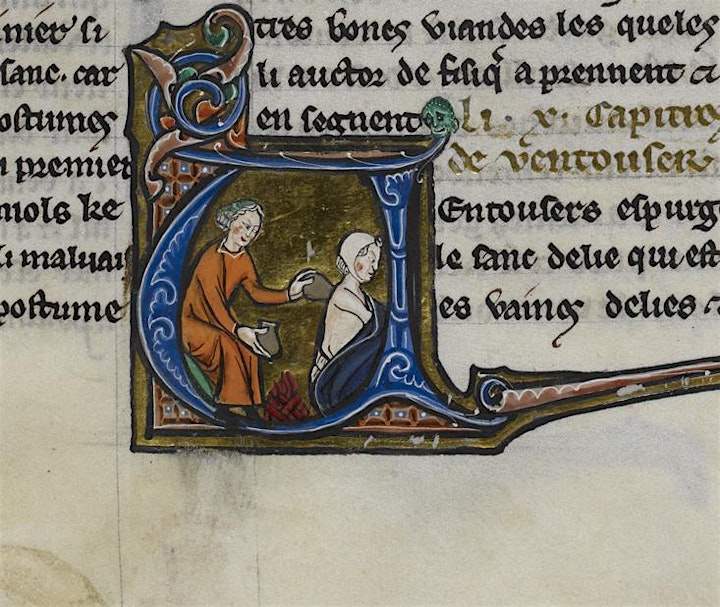 inier si
sanc. car
ostumes
premier
mols ke
li maluai
postume
tres bones viandes les queles
li auctor de fisiq̄ a prennent
en seguent li . x . Capitre
de ventouser
Entousers espurg
le sanc delie qui est
es vaines delies